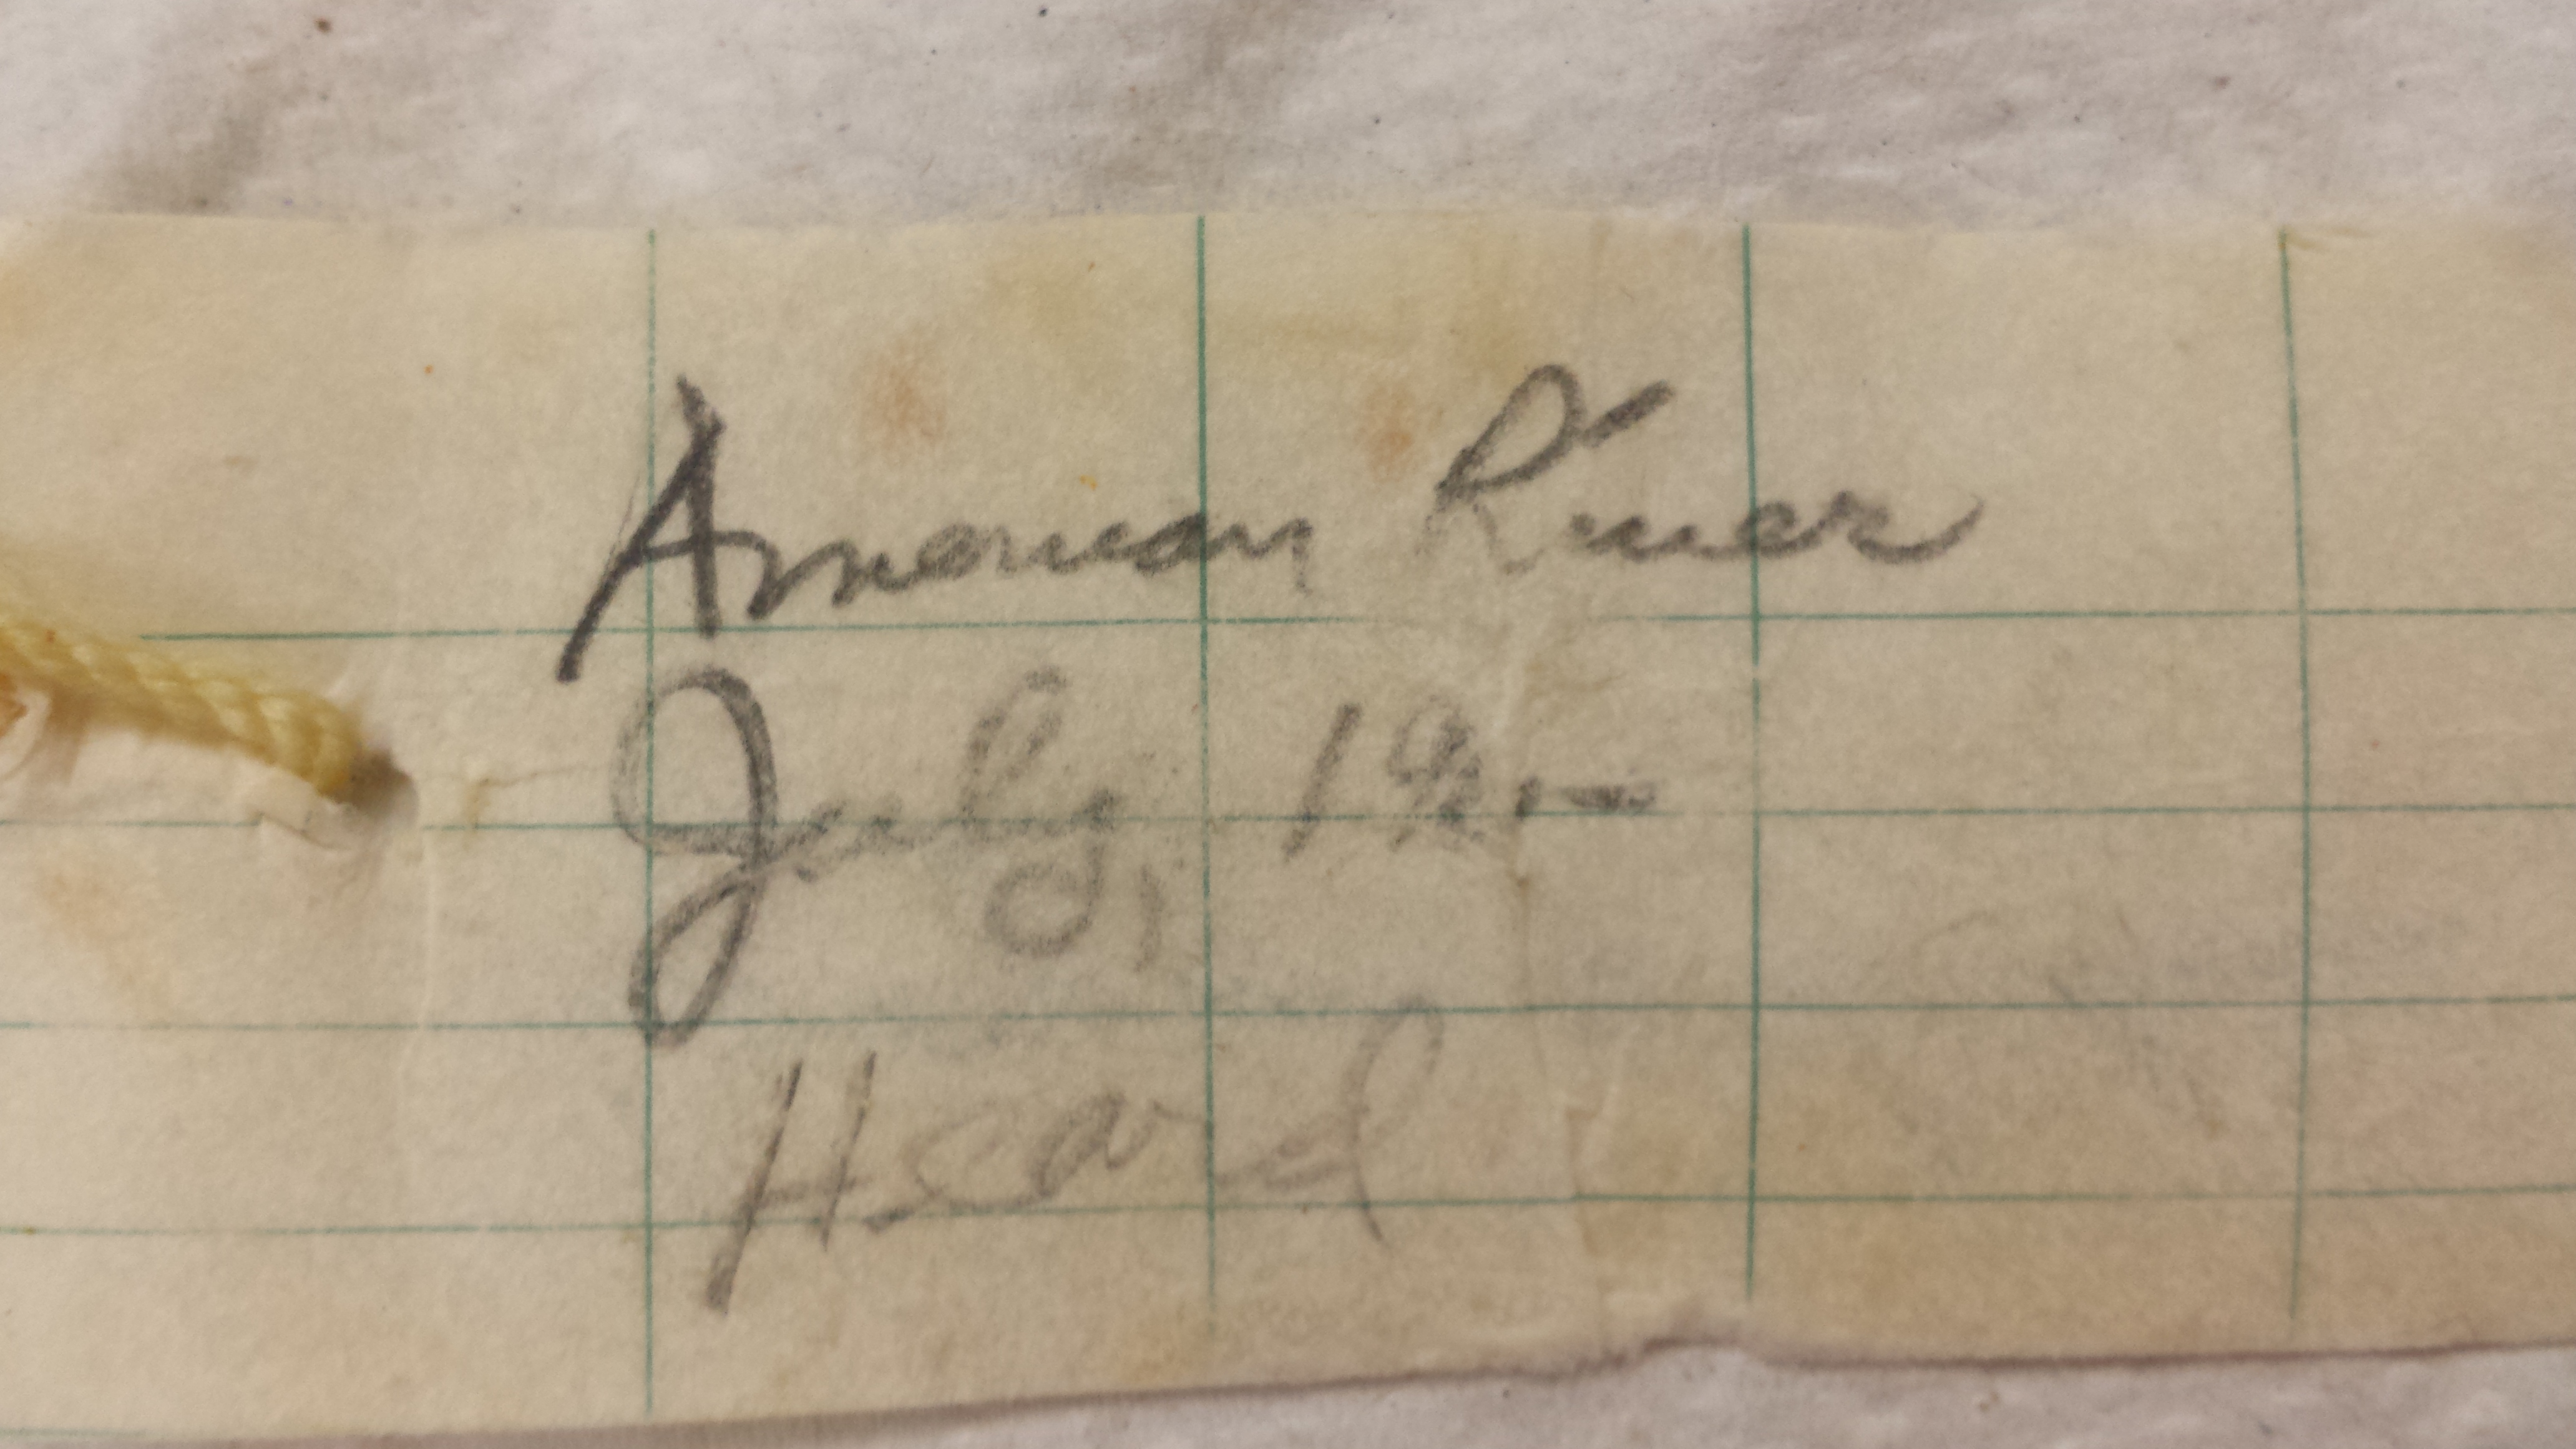 American River
July,
Heard